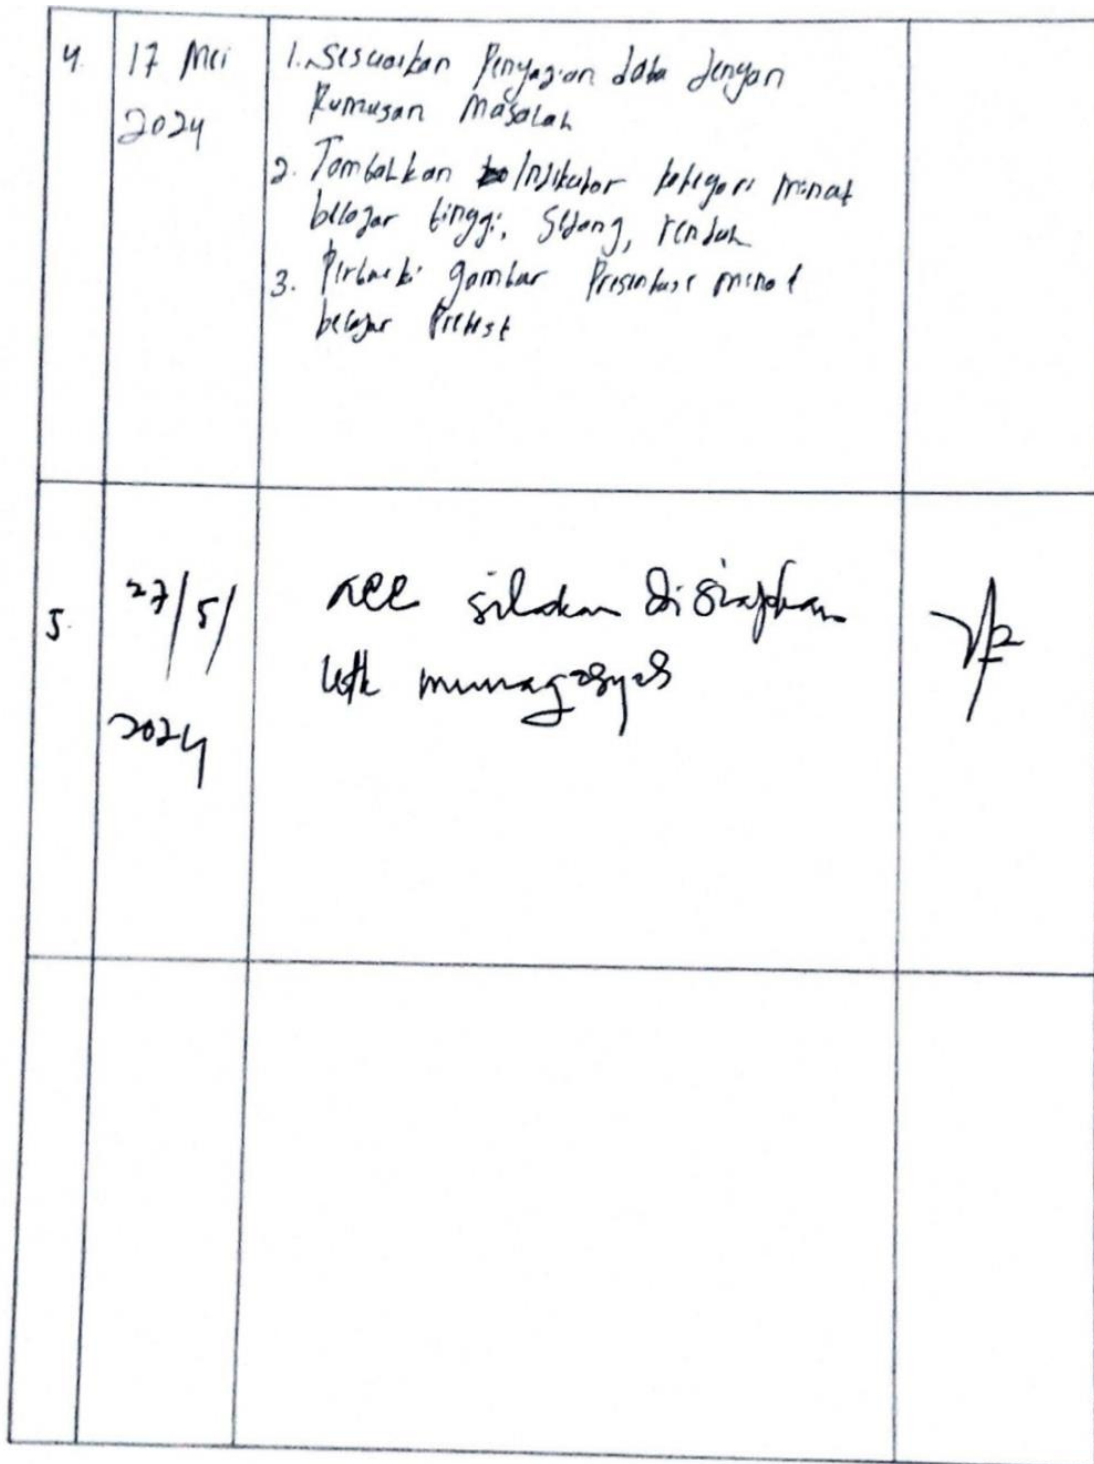 4. 17 Mei 2024
1. Sesuaikan Penyajian data dengan
Rumusan Masalah
2. Tambahkan Indikator kategori minat
belajar tinggi, sedang, rendah
3. Perbaiki gambar Presentase minat
belajar Pretest
5. 27/5/2024
acc silakan disiapkan
utk munaqasyas